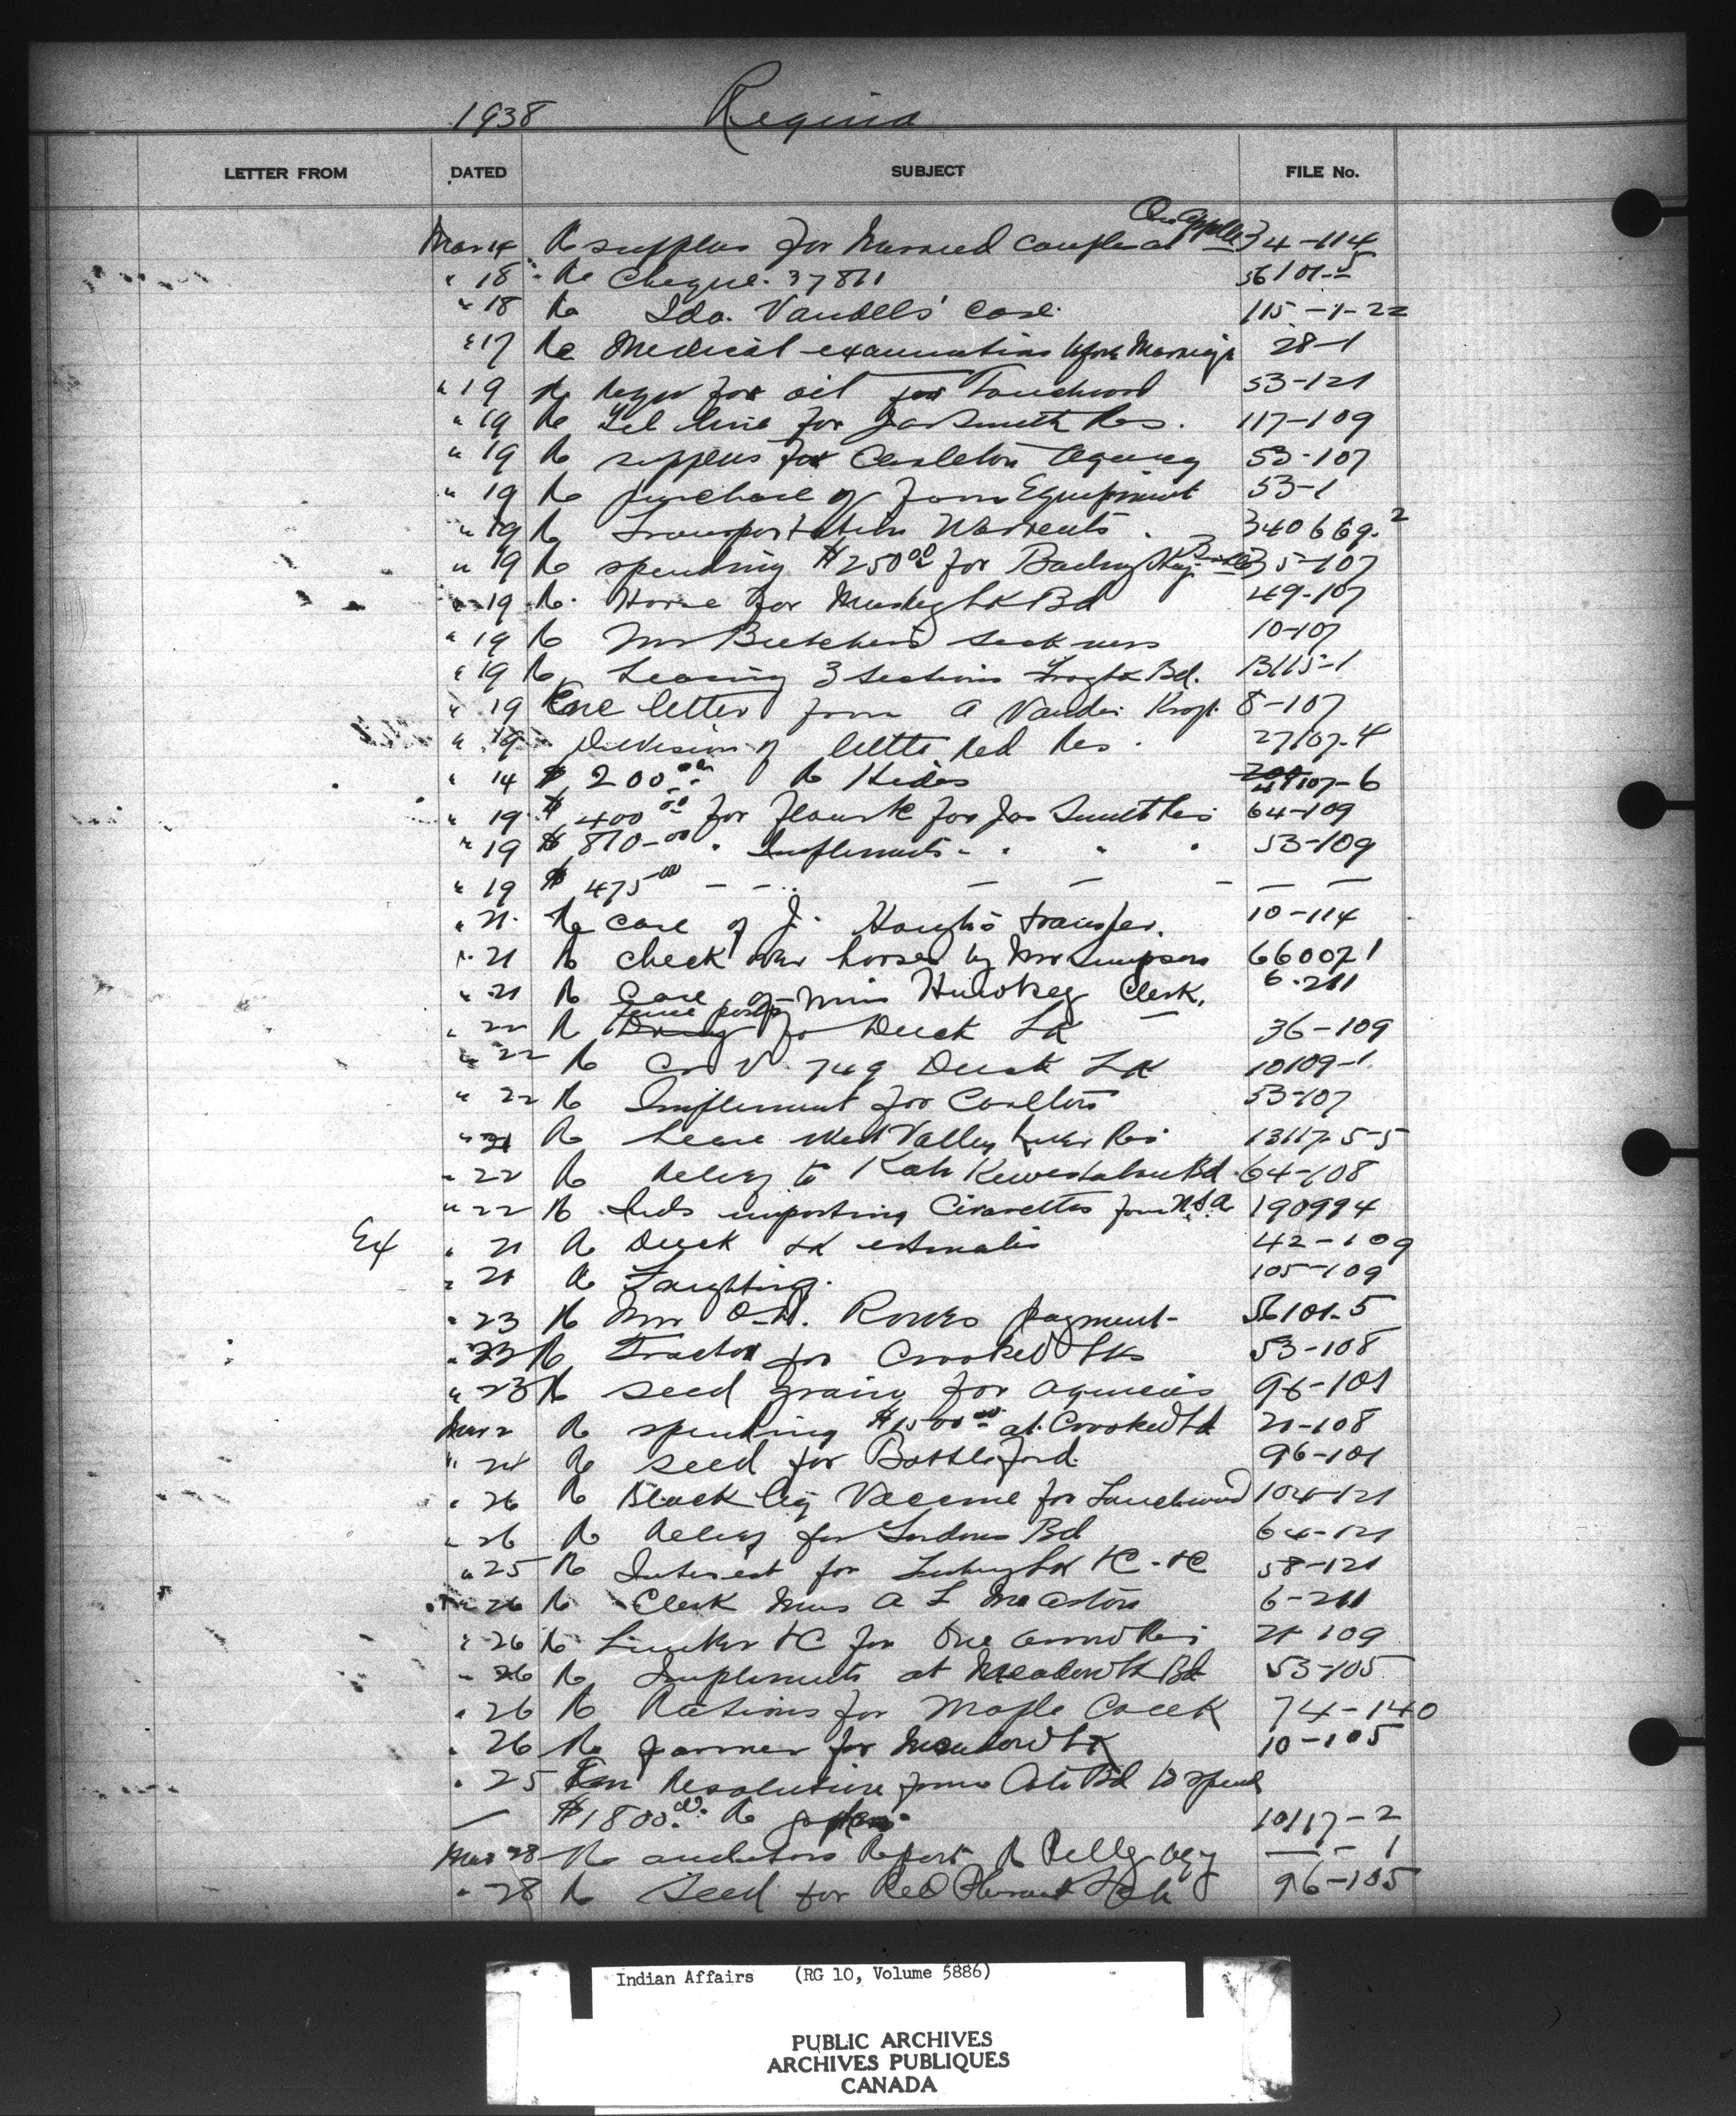 1938 Regina
LETTER FROM DATED SUBJECT FILE No.
Mar 14 Re supplies for Married couples at Qu'Appelle 34-114
" 18 Re Cheque 37811 56101-5
" 18 Re Ida. Vandells' case 115-1-22
" 17 Re Medical examinations before Marriage 28-1
" 19 Re for oil for Touchwood 53-121
" 19 Re Tel line for Jas Smith Res. 117-109
" 19 Re supplies for Carleton Agency 53-107
" 19 Re purchase of farm Equipment 53-1
" 19 Re Transportation Warrents 340669.2
" 19 Re spending $250.00 for 35-107
" 19 Re Horse for Muskeg Lk Bd 49-107
" 19 Re Mr Butcher's sickness 10-107
" 19 Re Leasing 3 sections Bd. B115-1
" 19 Enc letter from A Vander 8-107
" 19 Division of little red Res. 27107-4
" 14 $200.00 Re Hides 107-6
" 19 $400.00 for for Jas Smith Res 64-109
" 19 $870-00 " Implements " " " 53-109
" 19 $475.00 — — — — — — —
" 21 Re case of J. transfer. 10-114
" 21 Re check over horses by Mr Simpson 660071
" 21 Re Case of Miss Clerk. 6-211
" 22 Re fence posts for Duck Lk 36-109
" 22 Re C V 749 Duck Lk 10109-1
" 22 Re Implement for Carlton 53-107
" 21 Re Lease Valley River Res 13117-5-5
" 22 Re Relief to Bd 64-108
" 22 Re Inds importing Cigarettes from U.S.A. 190994
Ex " 21 Re Duck Lk estimates 42-109
" 21 Re 105-109
" 23 Re Mr Rowes payment- 56101-5
" 23 Re Tractor for Crooked Lks 53-108
" 23 Re seed grain for agencies 96-101
Mar 2 Re spending $1500.00 at Crooked Lk 21-108
" 24 Re seed for Battleford. 96-101
" 26 Re Black leg Vaccine for Touchwood 104-121
" 26 Re Relief for Gordons Bd 64-121
" 25 Re Interest for 58-121
" 26 Re Clerk Miss A L 6-211
" 26 Re Lumber for One arrow Res 21-109
" 26 Re Implements at Meadow Lk Bd 53-105
" 26 Re Rations for Maple Creek 74-140
" 26 Re farmer for Meadow Lk 10-105
" 25 Resolution from Cote Bd to spend
— $1800.00 Re 10117-2
Mar 28 Re auditors Report Re Pelly Agy — 1-1
" 28 Re Seed for Red Pheasant 96-105
Indian Affairs (RG 10, Volume 5886)
PUBLIC ARCHIVES
ARCHIVES PUBLIQUES
CANADA